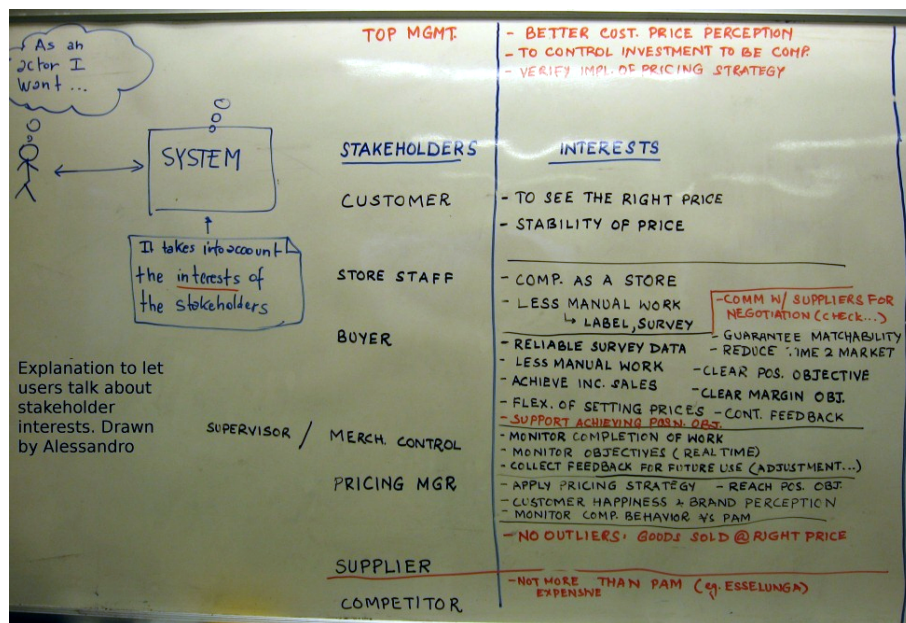 As an
actor I
want ...
SYSTEM
It takes into account
the interests of
the stakeholders
Explanation to let
users talk about
stakeholder
interests. Drawn
by Alessandro
TOP MGMT.
- BETTER COST. PRICE PERCEPTION
- TO CONTROL INVESTMENT TO BE COMP.
- VERIFY IMPL. OF PRICING STRATEGY
STAKEHOLDERS
INTERESTS
CUSTOMER
- TO SEE THE RIGHT PRICE
- STABILITY OF PRICE
STORE STAFF
- COMP. AS A STORE
- LESS MANUAL WORK
↳ LABEL, SURVEY
- COMM W/ SUPPLIERS FOR
NEGOTIATION (CHECK...)
BUYER
- RELIABLE SURVEY DATA
- LESS MANUAL WORK
- ACHIEVE INC. SALES
- FLEX. OF SETTING PRICES
- SUPPORT ACHIEVING POSN. OBJ.
- GUARANTEE MATCHABILITY
- REDUCE TIME 2 MARKET
- CLEAR POS. OBJECTIVE
- CLEAR MARGIN OBJ.
- CONT. FEEDBACK
SUPERVISOR / MERCH. CONTROL
- MONITOR COMPLETION OF WORK
- MONITOR OBJECTIVES (REAL TIME)
- COLLECT FEEDBACK FOR FUTURE USE (ADJUSTMENT...)
PRICING MGR
- APPLY PRICING STRATEGY - REACH POS. OBJ.
- CUSTOMER HAPPINESS & BRAND PERCEPTION
- MONITOR COMP. BEHAVIOR VS PAM
- NO OUTLIERS: GOODS SOLD @ RIGHT PRICE
SUPPLIER
COMPETITOR
- NOT MORE THAN PAM (eg. ESSELUNGA)
EXPENSIVE